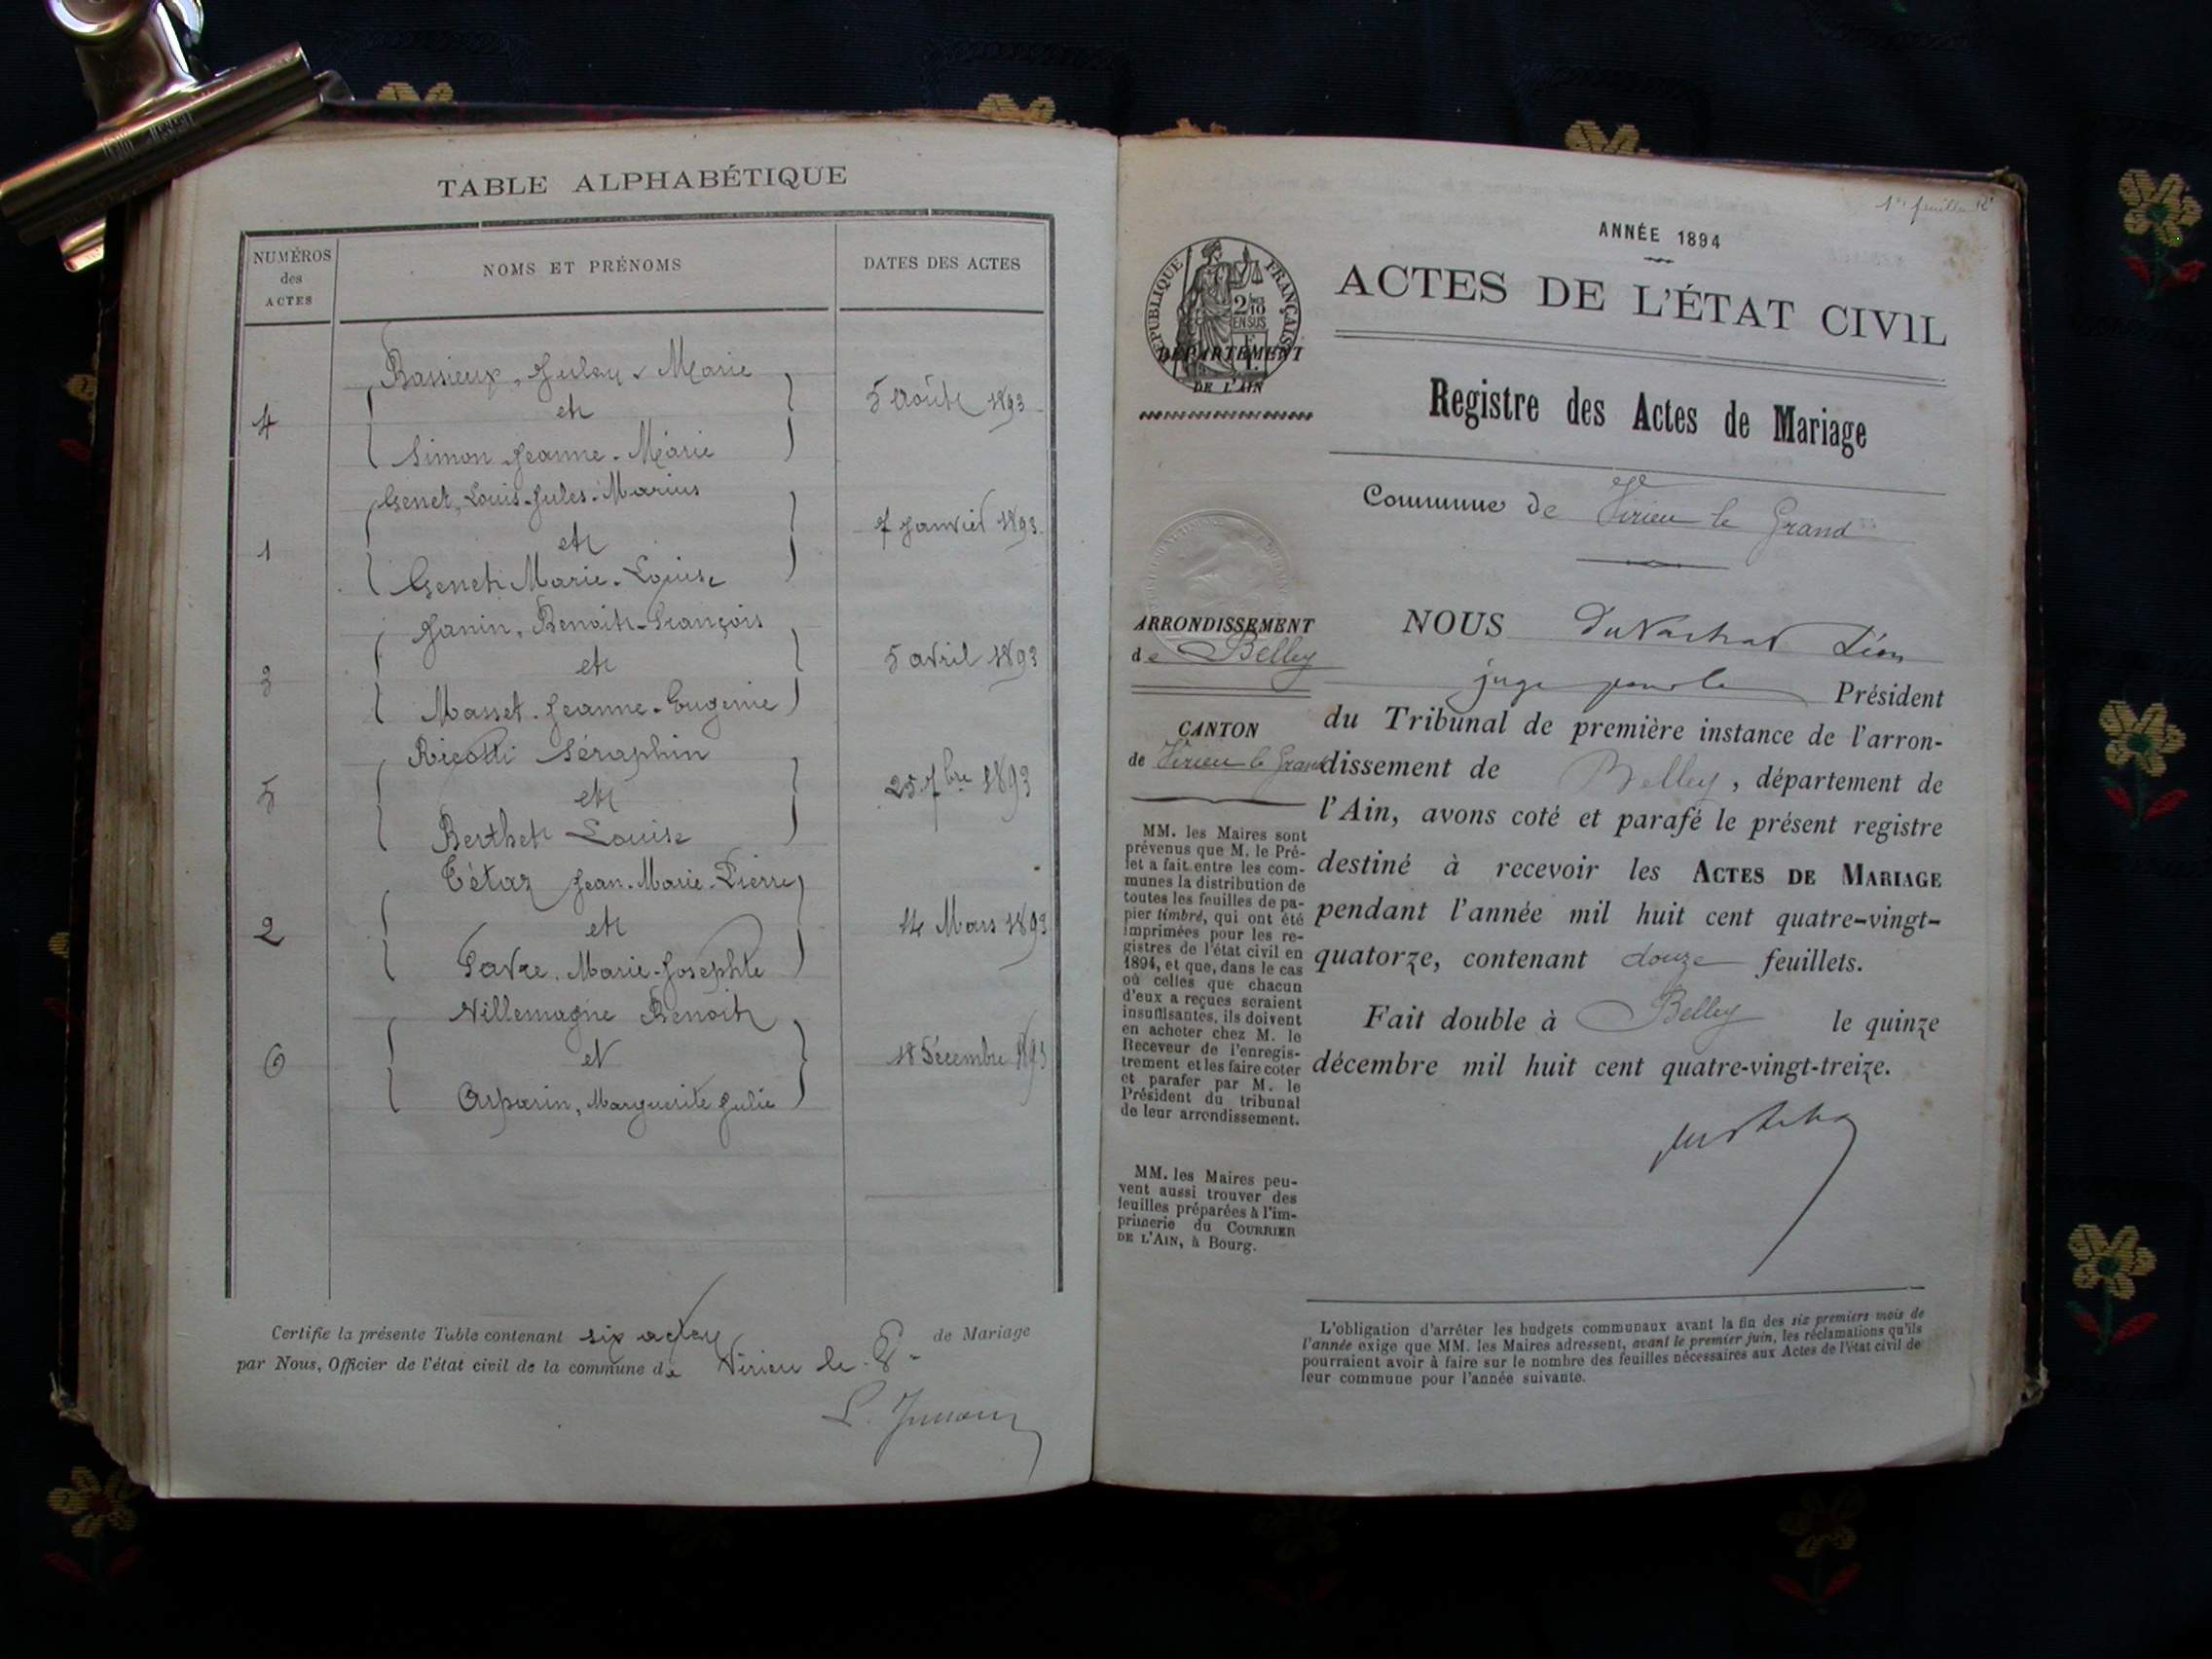 TABLE ALPHABÉTIQUE
NUMÉROS des ACTES
NOMS ET PRÉNOMS
DATES DES ACTES
4
Bassieux, Jules Marie
et
Simon Jeanne-Marie
5 Août 1893
1
Genet, Louis-Jules-Marius
et
Genet Marie-Louise
7 Janvier 1893
3
Janin, Benoit-François
et
Masset Jeanne-Eugenie
5 avril 1893
5
Ricotti Séraphin
et
Berthet Louise
25 7bre 1893
2
Tétaz Jean-Marie-Pierre
et
Favre, Marie-Josephte
14 Mars 1893
6
Villemagne Benoit
et
Marguerite Julie
18 Décembre 1893
Certifie la présente Table contenant six actes de Mariage
par Nous, Officier de l'état civil de la commune de Virieu le G
1er feuillet
ANNÉE 1894
ACTES DE L'ÉTAT CIVIL
RÉPUBLIQUE FRANÇAISE
2/10 EN SUS
DÉPARTEMENT
DE L'AIN
Registre des Actes de Mariage
Commune de Virieu le Grand
ARRONDISSEMENT
de Belley
CANTON
de Virieu le Grand
MM. les Maires sont
prévenus que M. le Pré-
fet a fait entre les com-
munes la distribution de
toutes les feuilles de pa-
pier timbré, qui ont été
imprimées pour les re-
gistres de l'état civil en
1894, et que, dans le cas
où celles que chacun
d'eux a reçues seraient
insuffisantes, ils doivent
en acheter chez M. le
Receveur de l'enregis-
trement et les faire coter
et parafer par M. le
Président du tribunal
de leur arrondissement.
MM. les Maires peu-
vent aussi trouver des
feuilles préparées à l'im-
primerie du COURRIER
DE L'AIN, à Bourg.
NOUS Léon
juge pour le Président
du Tribunal de première instance de l'arron-
dissement de Belley, département de
l'Ain, avons coté et parafé le présent registre
destiné à recevoir les ACTES DE MARIAGE
pendant l'année mil huit cent quatre-vingt-
quatorze, contenant douze feuillets.
Fait double à Belley le quinze
décembre mil huit cent quatre-vingt-treize.
L'obligation d'arrêter les budgets communaux avant la fin des six premiers mois de
l'année exige que MM. les Maires adressent, avant le premier juin, les réclamations qu'ils
pourraient avoir à faire sur le nombre des feuilles nécessaires aux Actes de l'état civil de
leur commune pour l'année suivante.